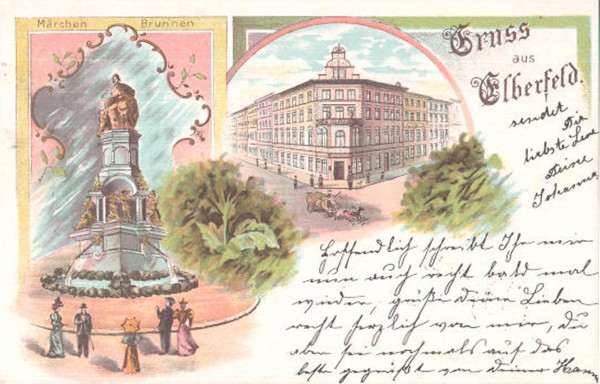 Märchen Brunnen
Gruss
aus
Elberfeld.
sendet
Dir
liebste
Deine
Johanna
Hoffentlich schreibt Ihr mir
nun auch recht bald mal
wieder, grüße deine Lieben
recht herzlich von mir, du
aber sei nochmals auf das
beste gegrüßt von deiner